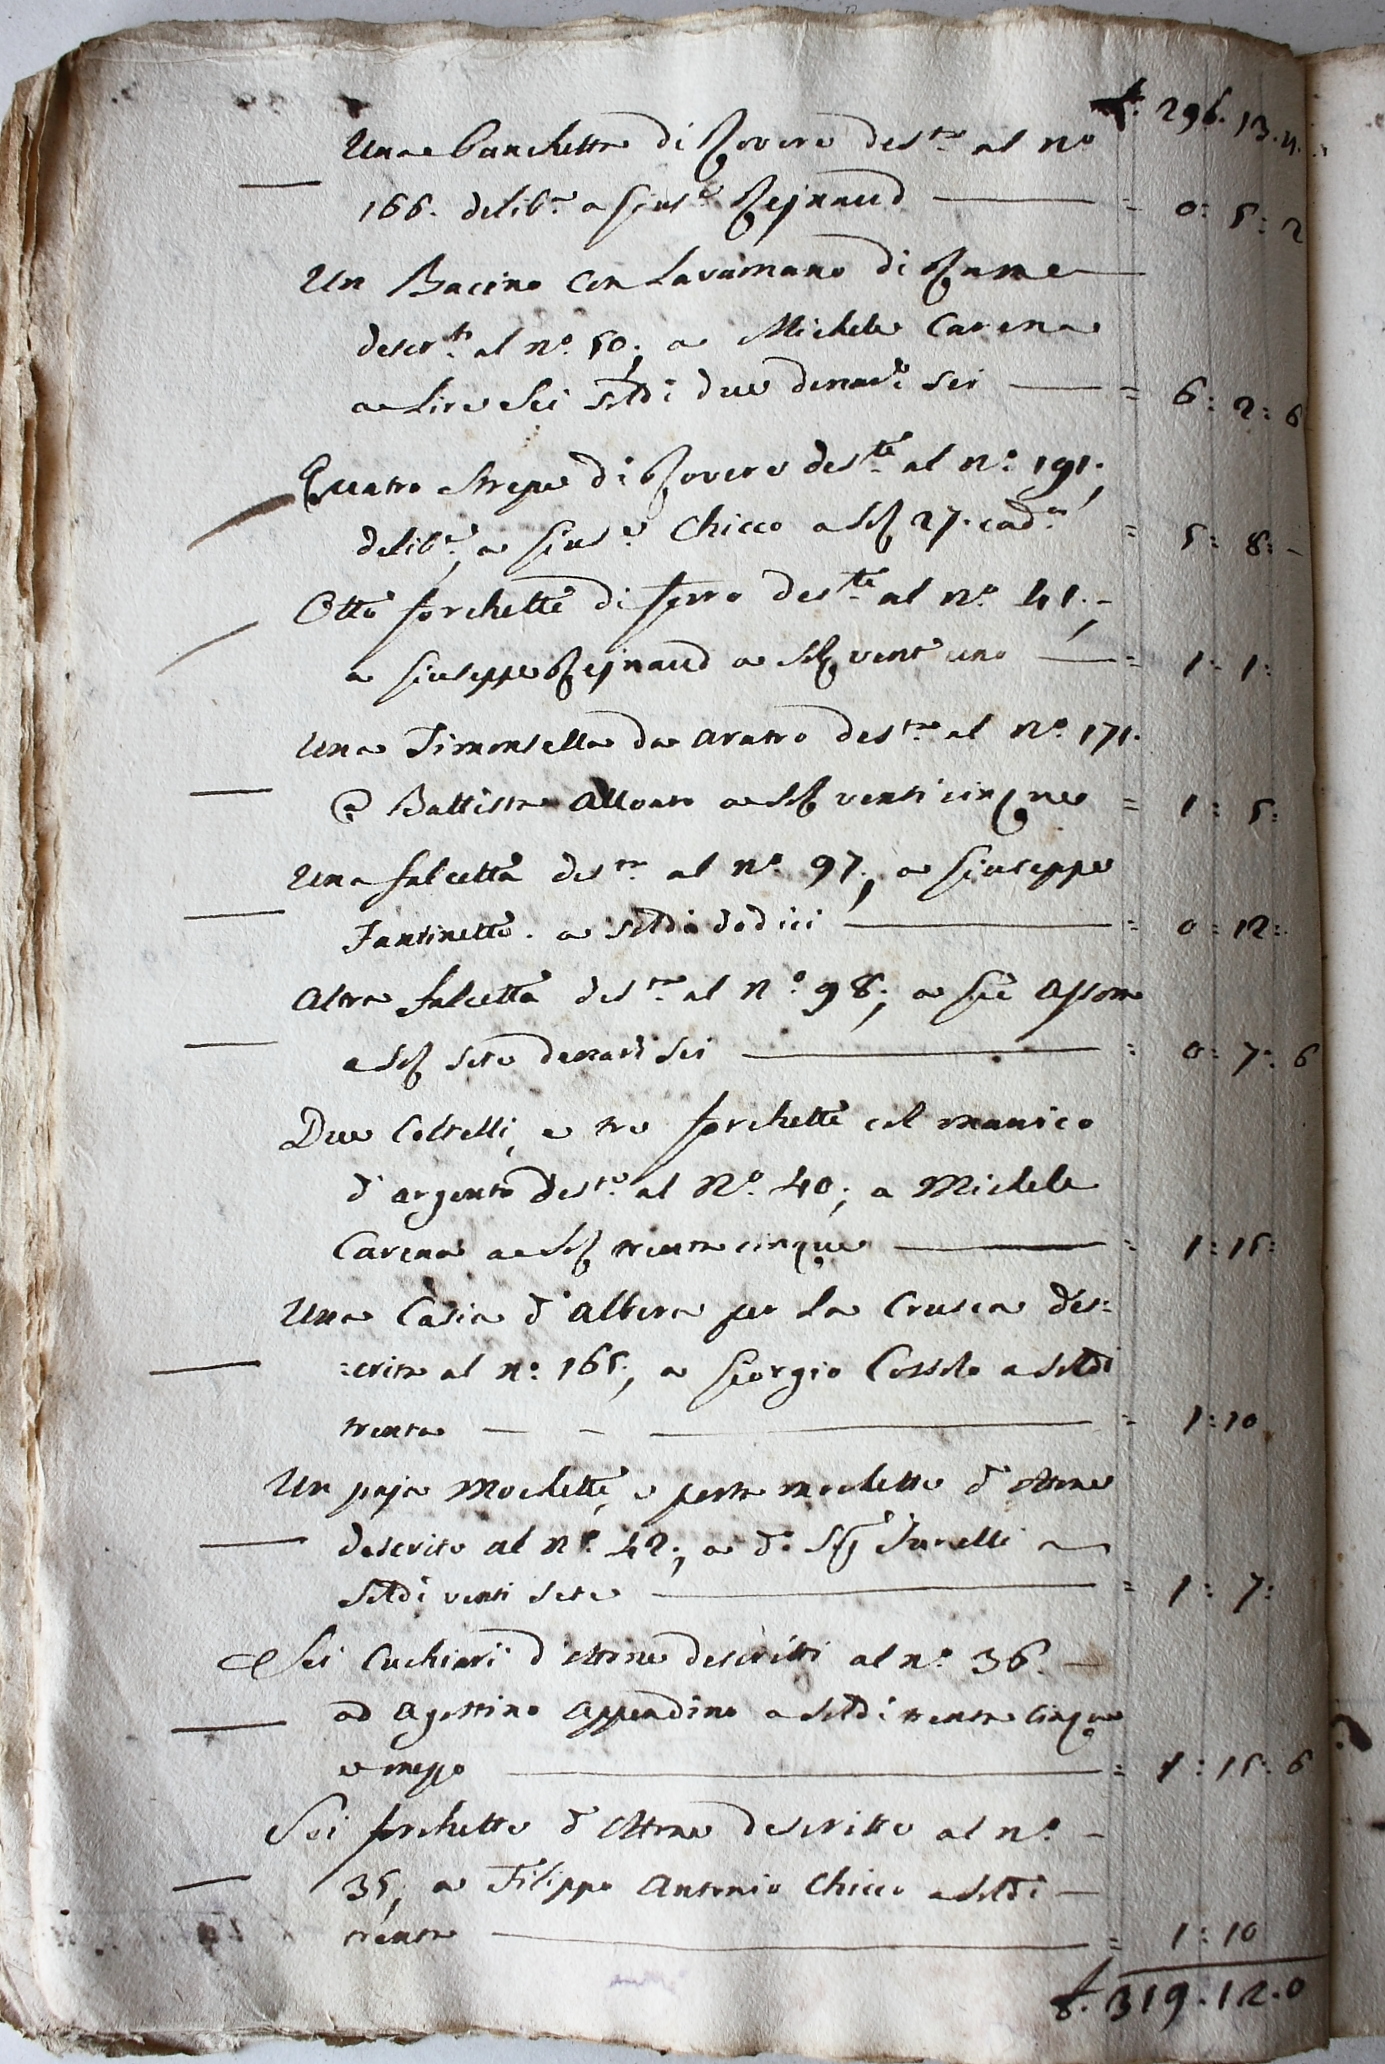 £. 296. 13. 4.
Una banchetta di Rovere des.ta al n.o
166. delib.a a Gius.e Rejnaud = 0: 5: 2
Un Bacino con Lavamano di Rame
descr.ti al n.o 50; a Michele Carena
a Lire Sei soldi due denari Sei = 6: 2: 6
Quatro Strepe di Rovere des.te al n.o 191;
delib.e a Gius.e Chicco a sol 27. cad.a = 5: 8: -
Otto forchette di ferro des.te al n.o 41; -
a Giuseppe Rejnaud a sol vent uno = 1: 1:
Una Timonsella da aratro des.ta al n.o 171.
a Battista Alloato a sol venti cinque = 1: 5:
Una falcetta des.ta al n.o 97; a Giuseppe
Fantinetto. a soldi dodici = 0: 12:
Altra falcetta des.ta al n.o 98; a Gio Assom
a sol sete denari sei = 0: 7: 6
Due Coltelli, e tre forchette col manico
d'argento des.te al N.o 40; a Michele
Carena a sol trenta cinque = 1: 15:
Una Casia d'Albera per la Crusca des:
:crita al n.o 165; a Giorgio Cossolo a soldi
trenta = 1: 10
Un paja Mochette, e porta mochette d'ottone
descrito al N.o 42; a d.o Sig Tunelli a
soldi venti sete = 1: 7:
Sei Cuchiari d'ottone descritti al n.o 36. -
ad Agostino Appendino a soldi trenta cinque
e mezzo = 1: 15: 6
Sei forchette d'ottone descritte al n.o -
35; a Filippo Antonio Chicco a soldi -
trenta = 1: 10
£. 319. 12. 0